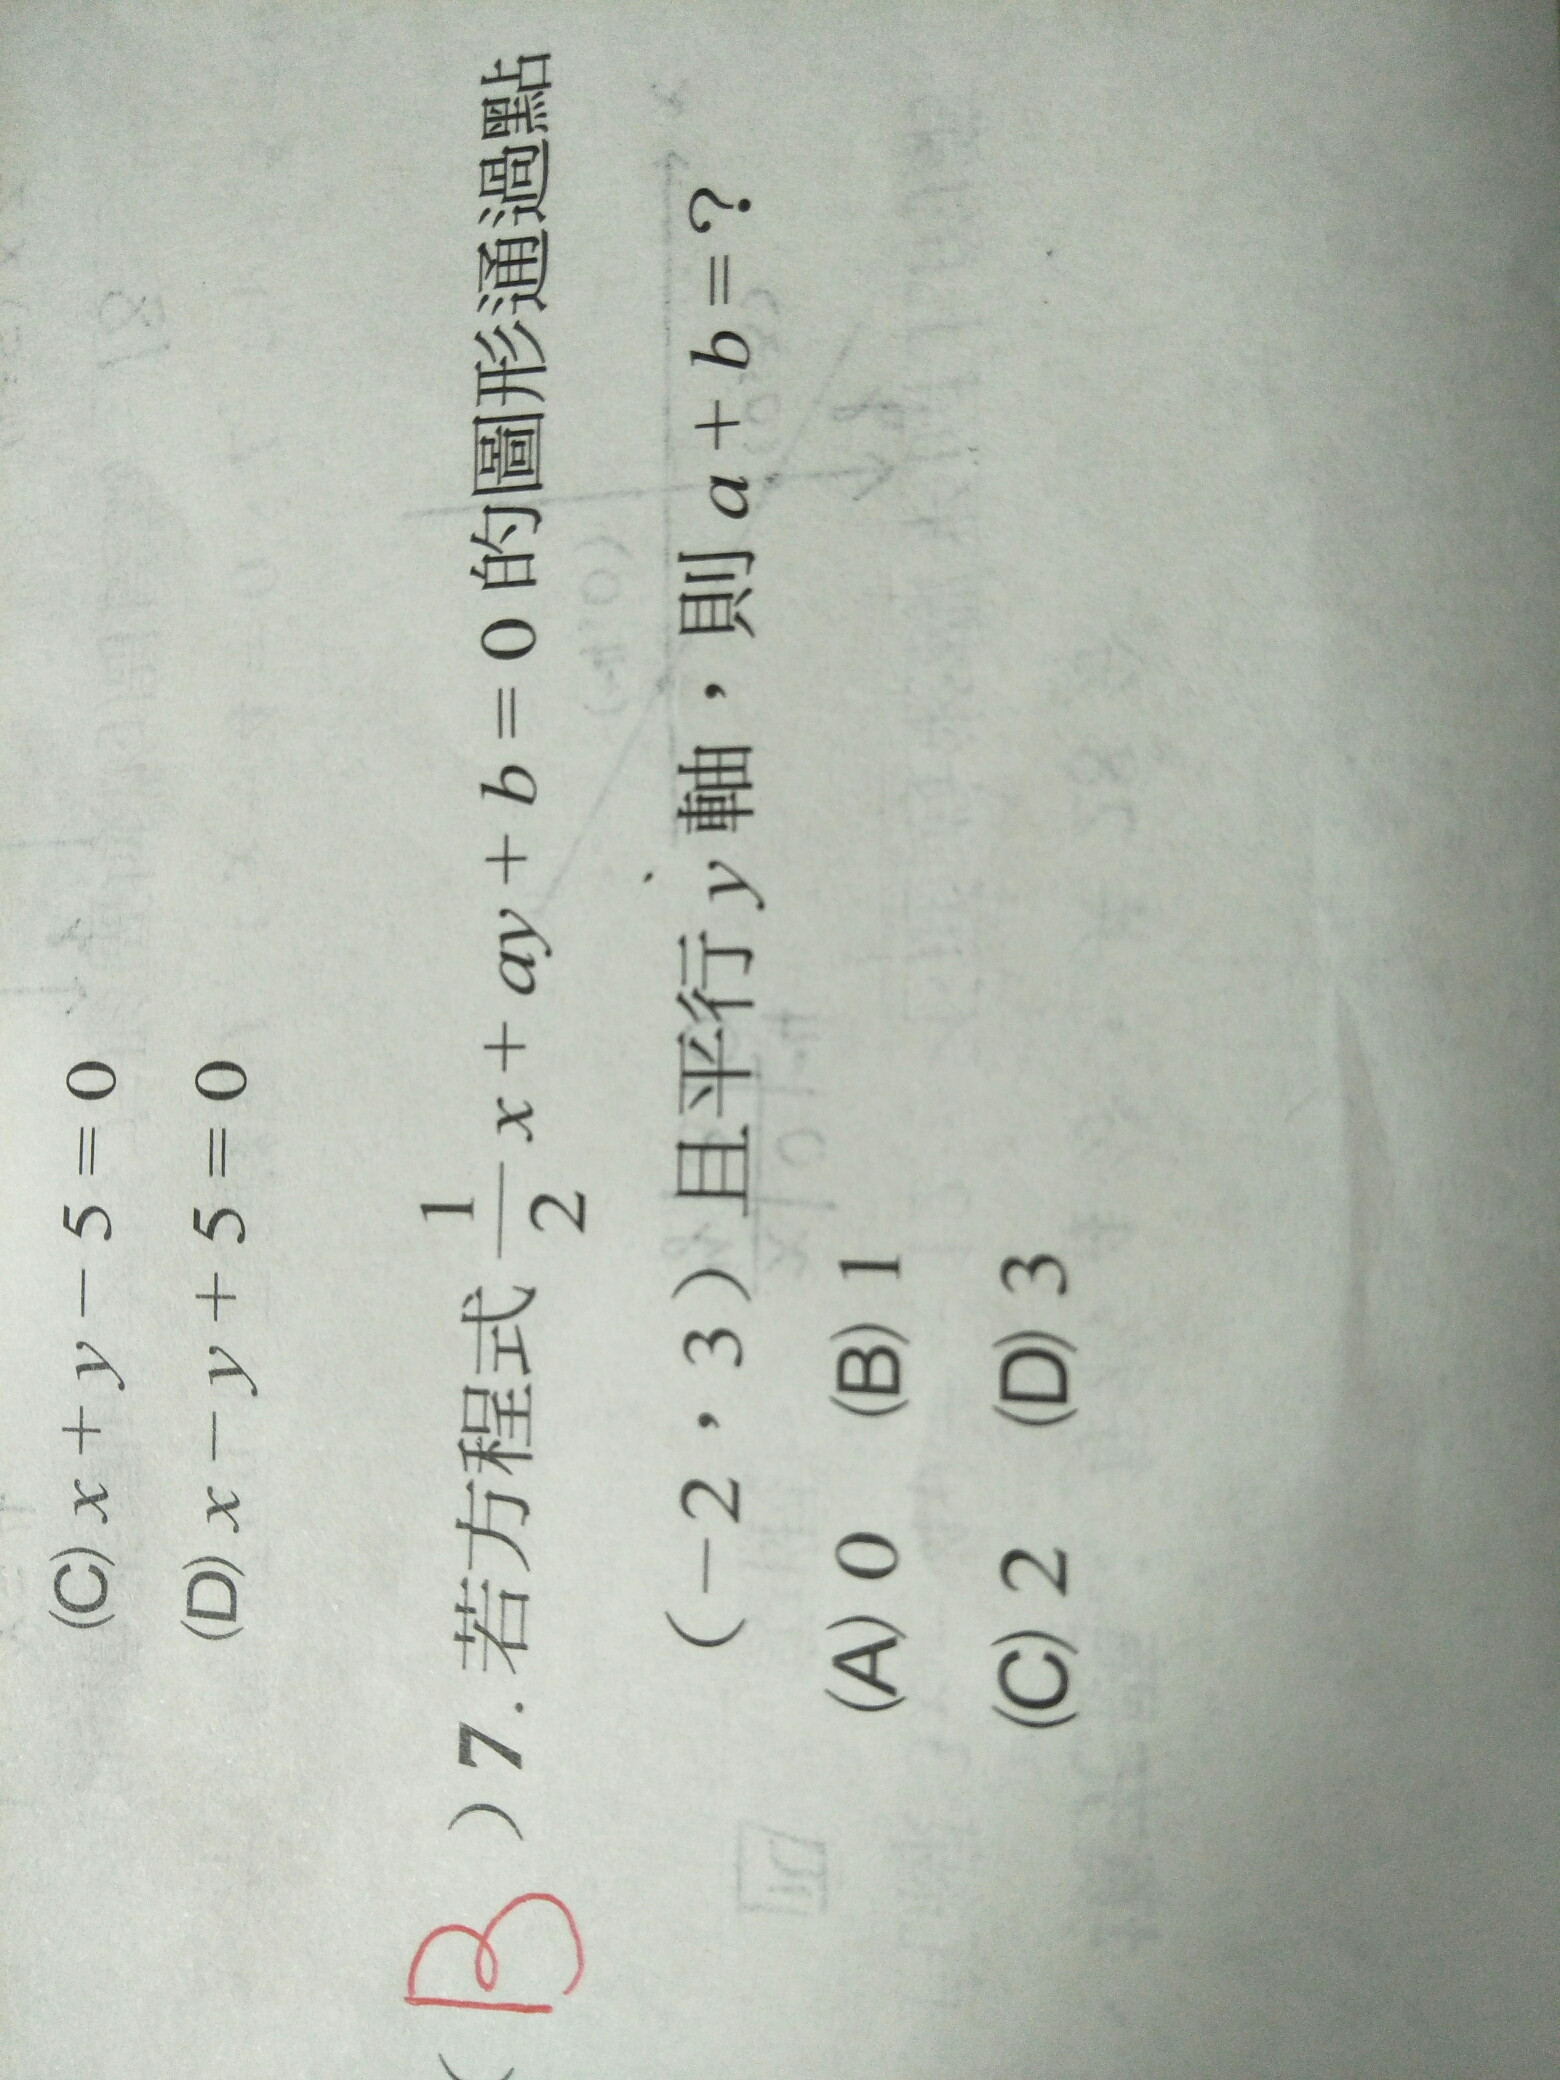 (C) x + y - 5 = 0
(D) x - y + 5 = 0
( B ) 7. 若方程式 1/2 x + ay + b = 0 的圖形通過點
(-2,3) 且平行 y 軸,則 a + b = ?
(A) 0 (B) 1
(C) 2 (D) 3